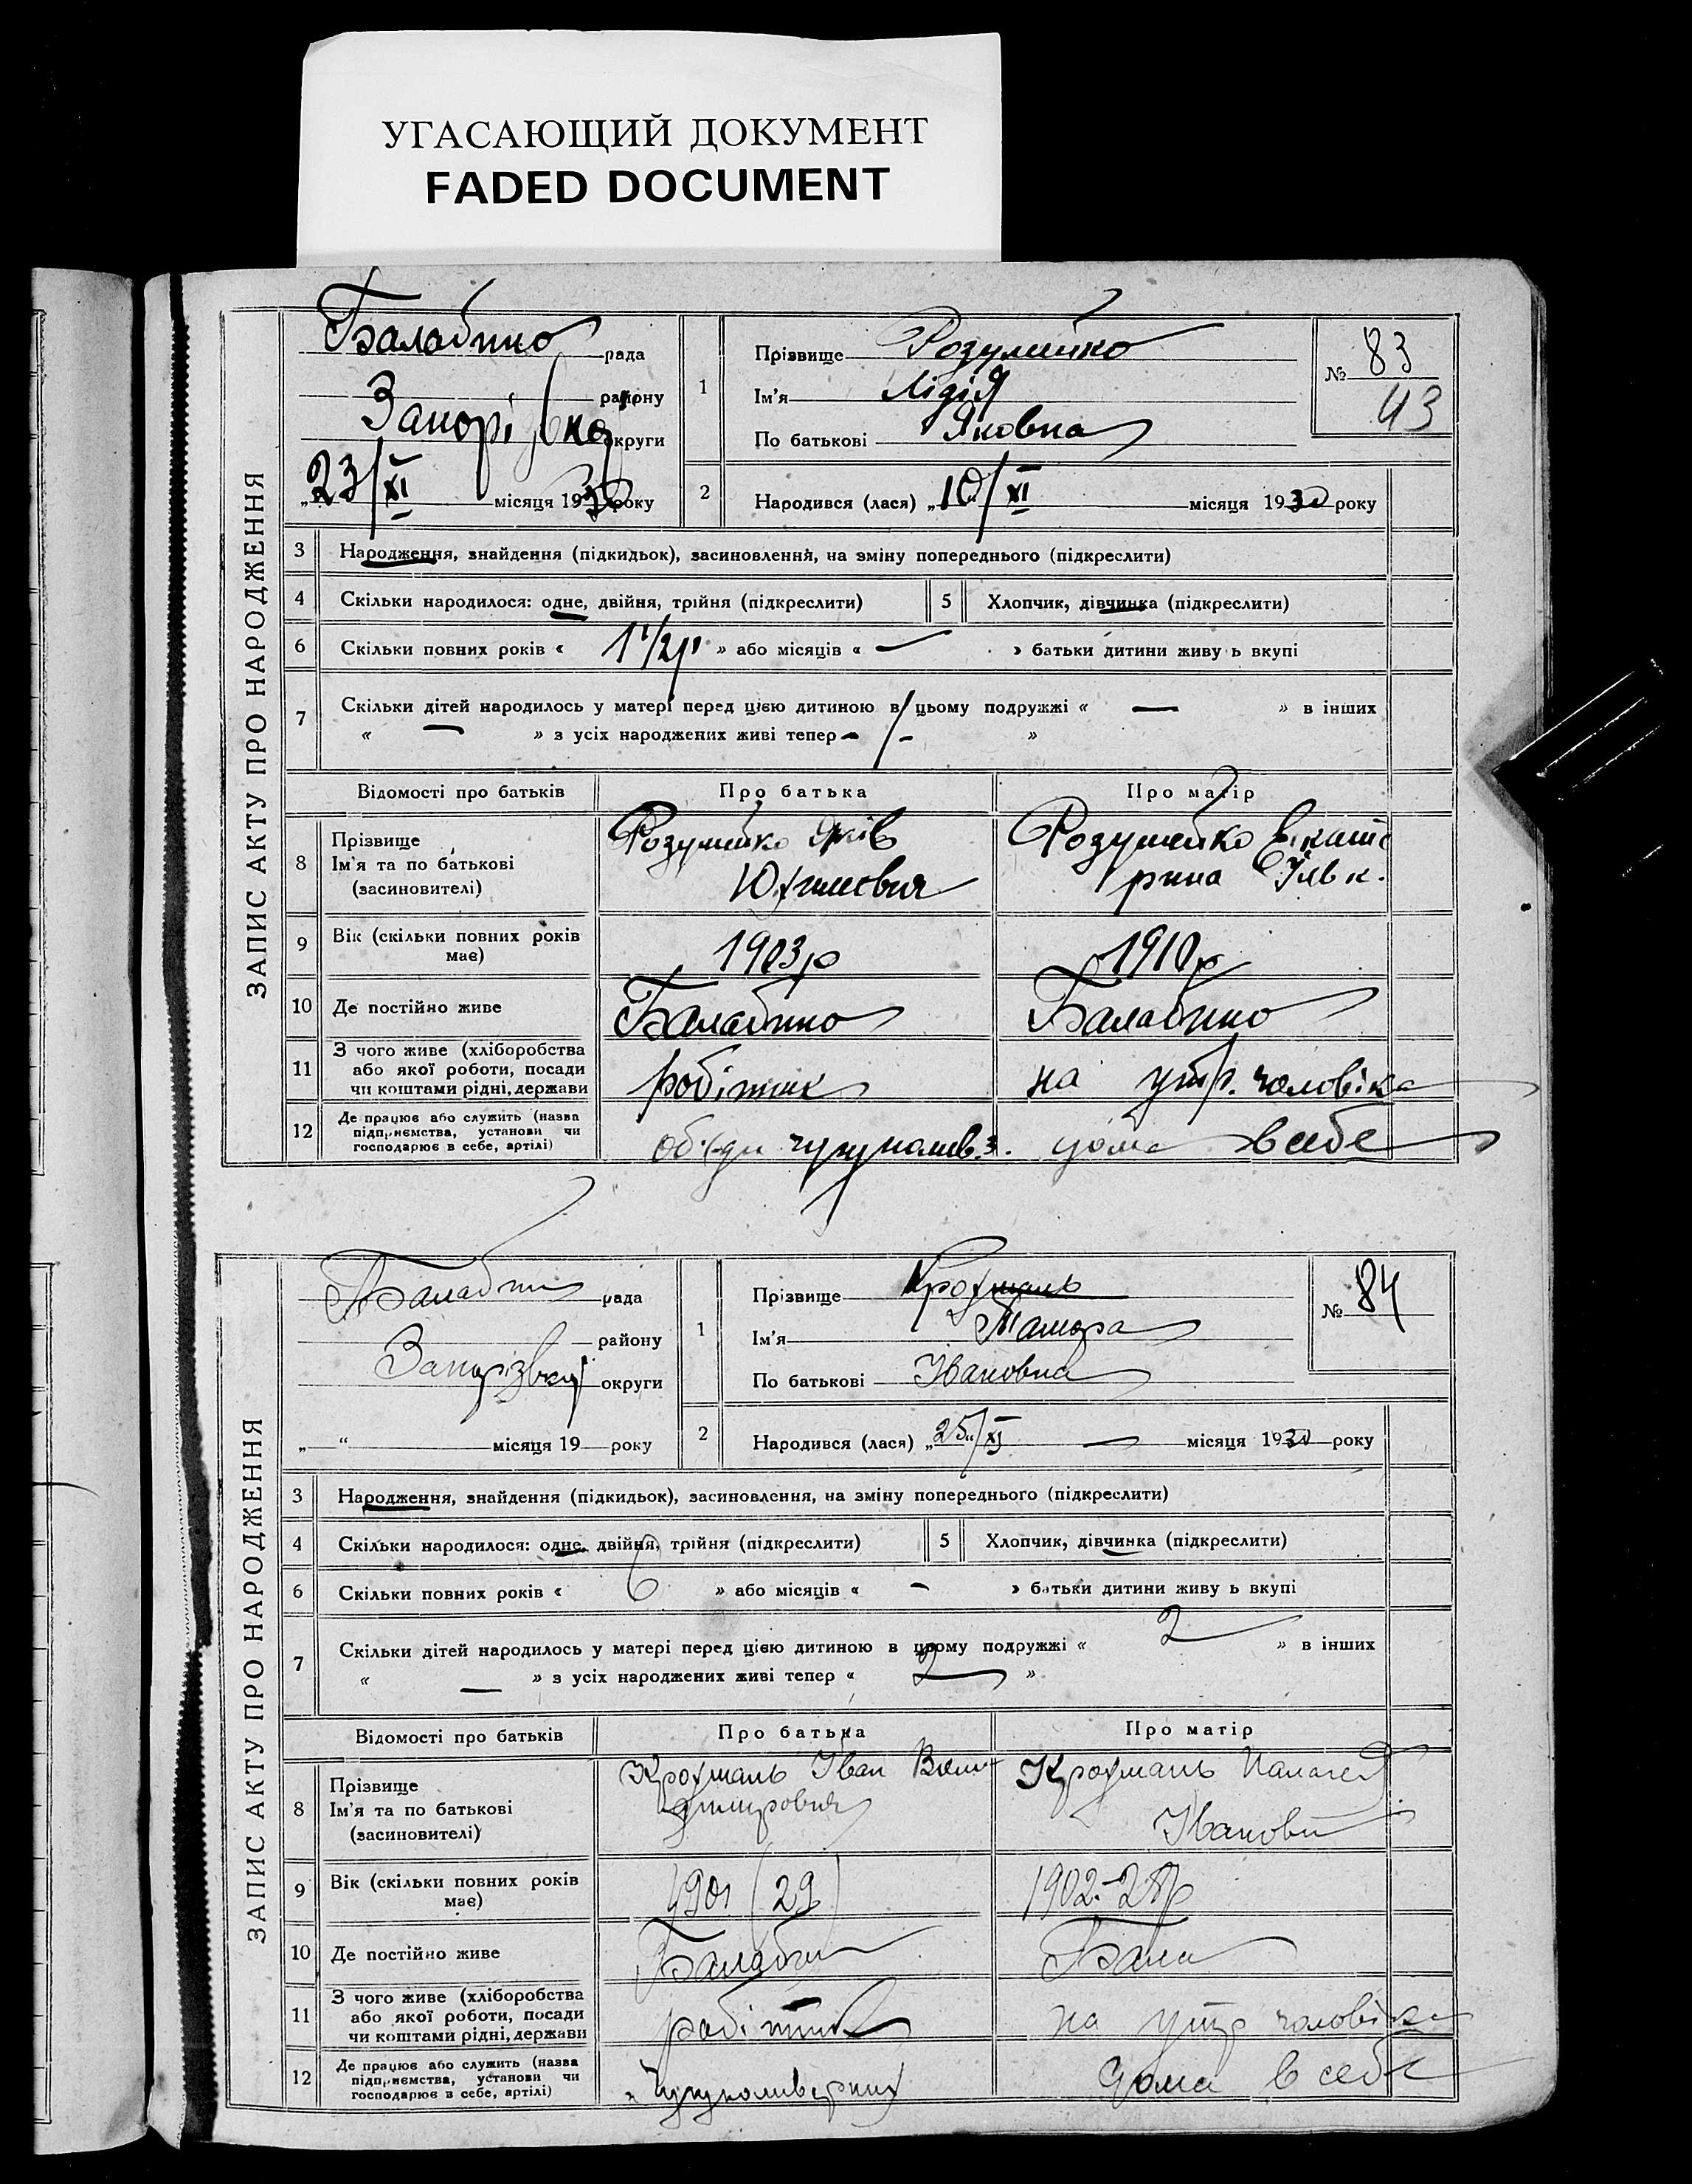 УГАСАЮЩИЙ ДОКУМЕНТ
FADED DOCUMENT
ЗАПИС АКТУ ПРО НАРОДЖЕННЯ
Балабино рада
району
округи
23/XI місяця 1930 року
1
Прізвище Розумейко
Ім'я Лідія
По батькові Яковна
№ 83
43
2 Народився (лася) „10/XI місяця 1930 року
3 Народження, знайдення (підкидьок), засиновлення, на зміну попереднього (підкреслити)
4 Скільки народилося: одне, двійня, трійня (підкреслити) 5 Хлопчик, дівчинка (підкреслити)
6 Скільки повних років « 1 1/2 р » або місяців « — » батьки дитини живу ь вкупі
7 Скільки дітей народилось у матері перед цією дитиною в цьому подружжі « — » в інших
« — » з усіх народжених живі тепер - /- »
Відомості про батьків Про батька Про матір
8 Прізвище
Ім'я та по батькові
(засновителі)
Розумейко Яків
Юхимович
Розумейко Екате
рина
9 Вік (скільки повних років
має) 1903р 1910р
10 Де постійно живе Балабино Балабино
11 З чого живе (хліборобства
або якої роботи, посади
чи коштами рідні, держави
робітник на утр. чоловіка
12 Де працює або служить (назва
підприємства, установи чи
господарює в себе, артілі)
дома в себе
ЗАПИС АКТУ ПРО НАРОДЖЕННЯ
рада
району
округи
„ “ місяця 19 року
1
Прізвище Крохмаль
Ім'я Тамара
По батькові Івановна
№ 84
2 Народився (лася) „25/XI — місяця 1930 року
3 Народження, знайдення (підкидьок), засиновлення, на зміну попереднього (підкреслити)
4 Скільки народилося: одне, двійня, трійня (підкреслити) 5 Хлопчик, дівчинка (підкреслити)
6 Скільки повних років « 6 » або місяців « - » батьки дитини живу ь вкупі
7 Скільки дітей народилось у матері перед цією дитиною в цьому подружжі « 2 » в інших
« — » з усіх народжених живі тепер « 2 »
Відомості про батьків Про батька Про матір
8 Прізвище
Ім'я та по батькові
(засиновителі)
Крохмаль Іван
Крохмаль
9 Вік (скільки повних років
має) 1901 (29) 1902-28р
10 Де постійно живе Бала
11 З чого живе (хліборобства
або якої роботи, посади
чи коштами рідні, держави
робітник на утр чоловіка
12 Де працює або служить (назва
підприємства, установи чи
господарює в себе, артілі)
дома в себе